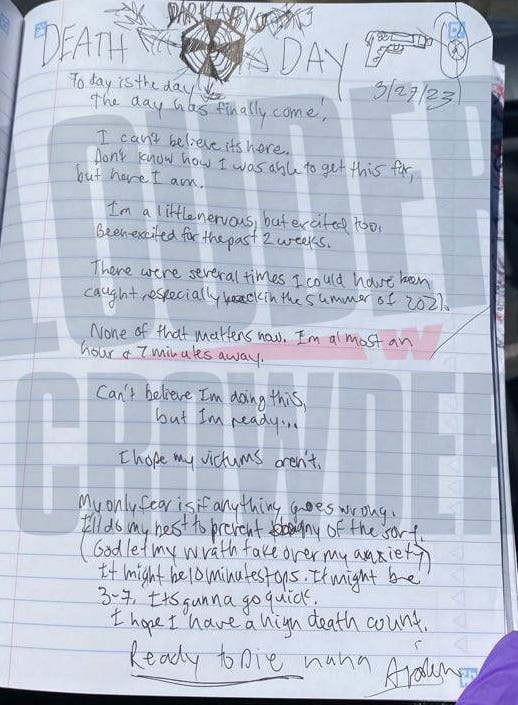 DEATH DAY
DARK ABYSS
3/27/23
Today is the day
The day has finally come!
I can't believe its here.
Dont know how I was able to get this far,
but here I am.
Im a little nervous, but excited too.
Been excited for the past 2 weeks.
There were several times I could have been
caught especially back in the summer of 2021.
None of that matters now. Im almost an
hour & 7 minutes away.
Can't believe Im doing this,
but Im ready...
I hope my victums aren't.
My only fear is if anything goes wrong.
I'll do my best to prevent any of the sort.
(God let my wrath take over my anxiety)
It might be 10 minutes tops. It might be
3-7. Its gunna go quick.
I hope I have a high death count.
Ready to Die haha Aiden
LOUDER
W
CROWDER